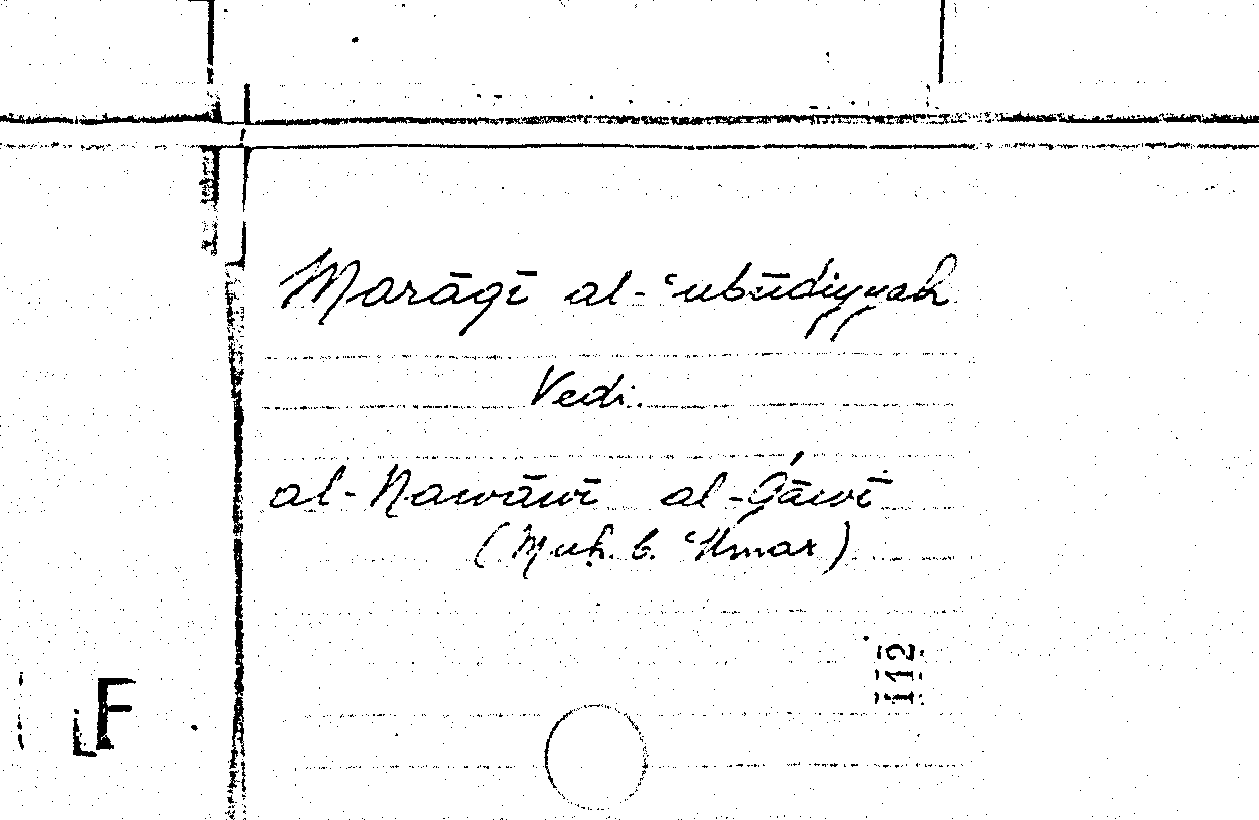 Marāqī al-ʿubūdiyyah
Vedi.
al-Nawāwī al-Ǵāwī
(Muḥ. b. ʿUmar)
112
F